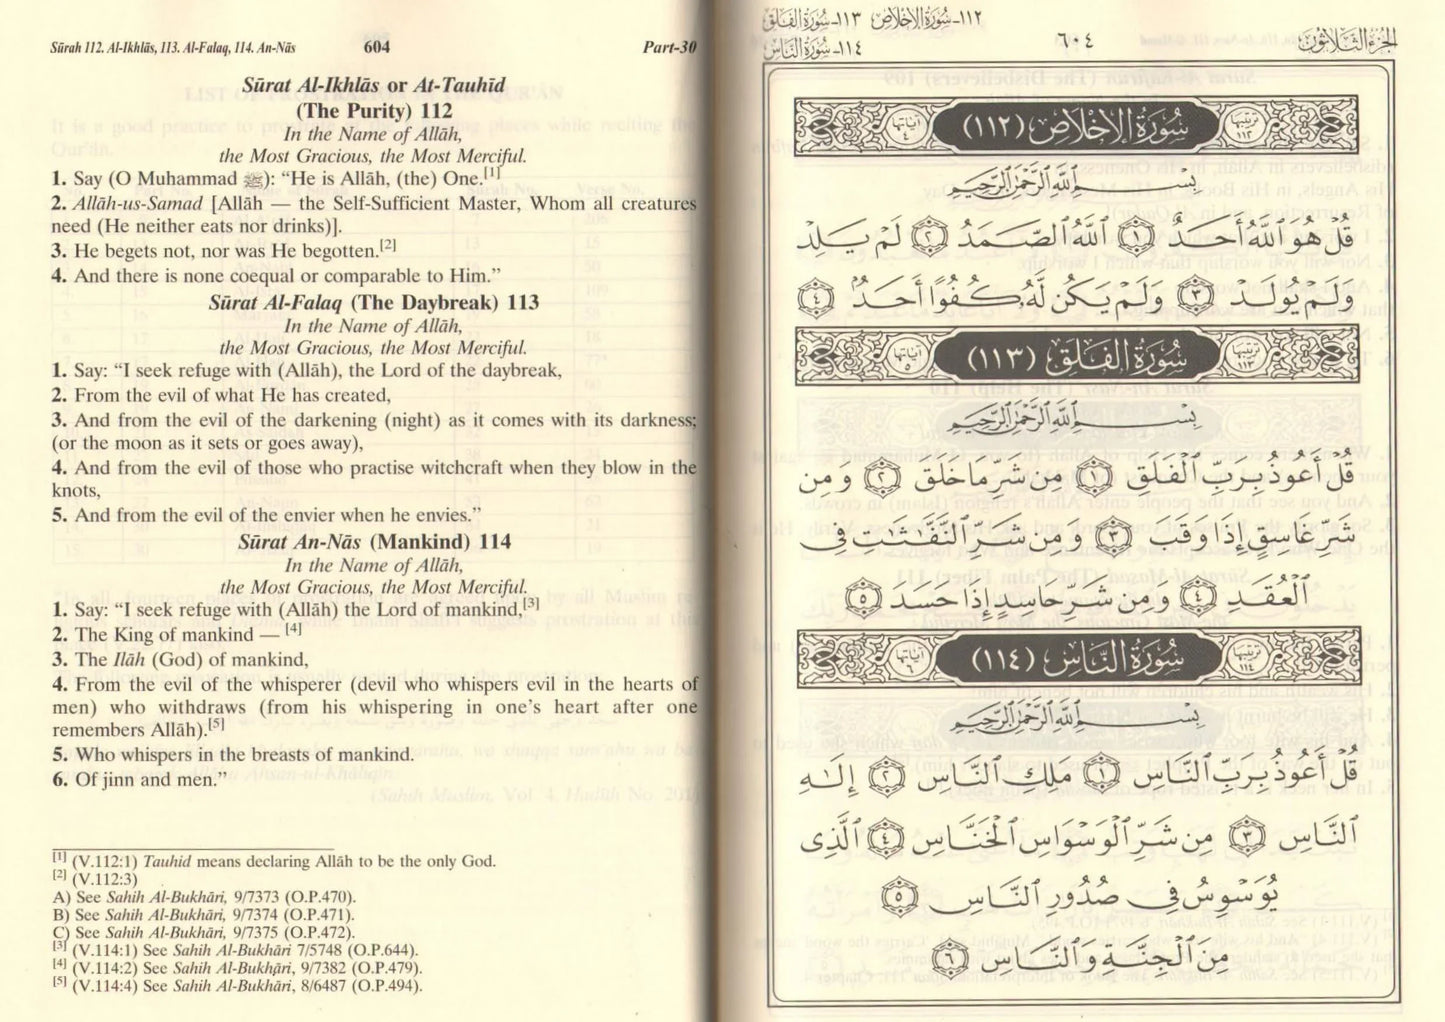 Sūrah 112. Al-Ikhlās, 113. Al-Falaq, 114. An-Nās 604 Part-30
Sūrat Al-Ikhlās or At-Tauhīd
(The Purity) 112
In the Name of Allāh,
the Most Gracious, the Most Merciful.
1. Say (O Muhammad ﷺ): “He is Allāh, (the) One.[1]
2. Allāh-us-Samad [Allāh — the Self-Sufficient Master, Whom all creatures
need (He neither eats nor drinks)].
3. He begets not, nor was He begotten.[2]
4. And there is none coequal or comparable to Him.”
Sūrat Al-Falaq (The Daybreak) 113
In the Name of Allāh,
the Most Gracious, the Most Merciful.
1. Say: “I seek refuge with (Allāh), the Lord of the daybreak,
2. From the evil of what He has created,
3. And from the evil of the darkening (night) as it comes with its darkness;
(or the moon as it sets or goes away),
4. And from the evil of those who practise witchcraft when they blow in the
knots,
5. And from the evil of the envier when he envies.”
Sūrat An-Nās (Mankind) 114
In the Name of Allāh,
the Most Gracious, the Most Merciful.
1. Say: “I seek refuge with (Allāh) the Lord of mankind,[3]
2. The King of mankind — [4]
3. The Ilāh (God) of mankind,
4. From the evil of the whisperer (devil who whispers evil in the hearts of
men) who withdraws (from his whispering in one’s heart after one
remembers Allāh).[5]
5. Who whispers in the breasts of mankind.
6. Of jinn and men.”
[1] (V.112:1) Tauhid means declaring Allāh to be the only God.
[2] (V.112:3)
A) See Sahih Al-Bukhāri, 9/7373 (O.P.470).
B) See Sahih Al-Bukhāri, 9/7374 (O.P.471).
C) See Sahih Al-Bukhāri, 9/7375 (O.P.472).
[3] (V.114:1) See Sahih Al-Bukhāri 7/5748 (O.P.644).
[4] (V.114:2) See Sahih Al-Bukhāri, 9/7382 (O.P.479).
[5] (V.114:4) See Sahih Al-Bukhāri, 8/6487 (O.P.494).
١١٢ـ سورة الإخلاص ١١٣ـ سورة الفلق
الجزء الثلاثون ٦٠٤ ١١٤ـ سورة الناس
ترتيبها ١١٢ سُورَةُ الإِخْلَاصِ (١١٢) آياتها ٤
بِسْمِ ٱللَّهِ ٱلرَّحْمَٰنِ ٱلرَّحِيمِ
قُلْ هُوَ ٱللَّهُ أَحَدٌ ١ ٱللَّهُ ٱلصَّمَدُ ٢ لَمْ يَلِدْ
وَلَمْ يُولَدْ ٣ وَلَمْ يَكُن لَّهُۥ كُفُوًا أَحَدٌۢ ٤
ترتيبها ١١٣ سُورَةُ الفَلَقِ (١١٣) آياتها ٥
بِسْمِ ٱللَّهِ ٱلرَّحْمَٰنِ ٱلرَّحِيمِ
قُلْ أَعُوذُ بِرَبِّ ٱلْفَلَقِ ١ مِن شَرِّ مَا خَلَقَ ٢ وَمِن
شَرِّ غَاسِقٍ إِذَا وَقَبَ ٣ وَمِن شَرِّ ٱلنَّفَّٰثَٰتِ فِى
ٱلْعُقَدِ ٤ وَمِن شَرِّ حَاسِدٍ إِذَا حَسَدَ ٥
ترتيبها ١١٤ سُورَةُ النَّاسِ (١١٤) آياتها ٦
بِسْمِ ٱللَّهِ ٱلرَّحْمَٰنِ ٱلرَّحِيمِ
قُلْ أَعُوذُ بِرَبِّ ٱلنَّاسِ ١ مَلِكِ ٱلنَّاسِ ٢ إِلَٰهِ
ٱلنَّاسِ ٣ مِن شَرِّ ٱلْوَسْوَاسِ ٱلْخَنَّاسِ ٤ ٱلَّذِى
يُوَسْوِسُ فِى صُدُورِ ٱلنَّاسِ ٥
مِنَ ٱلْجِنَّةِ وَٱلنَّاسِ ٦